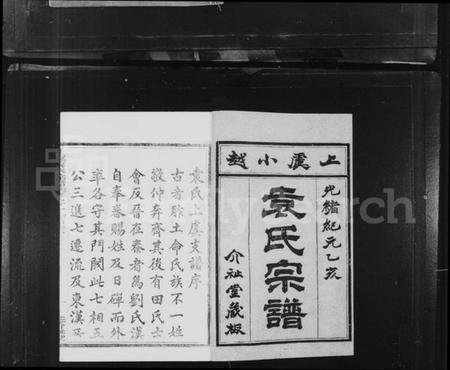 上虞小越
光緒紀元乙亥
袁氏宗譜
介祉堂藏版
袁氏上虞支譜序
古者胙土命氏族不一姓
敬仲奔齊其後有田氏士
會反晉在秦者爲劉氏漢
自奉春賜姓及日磾而外
率各守其門閥此七相五
公三遷七遷流及東漢